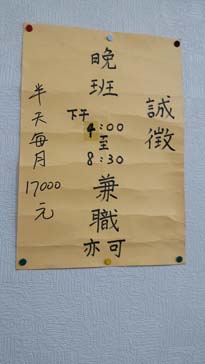 誠徵
晚班
下午
4:00
至
8:30
兼職
亦可
半天每月
17000
元